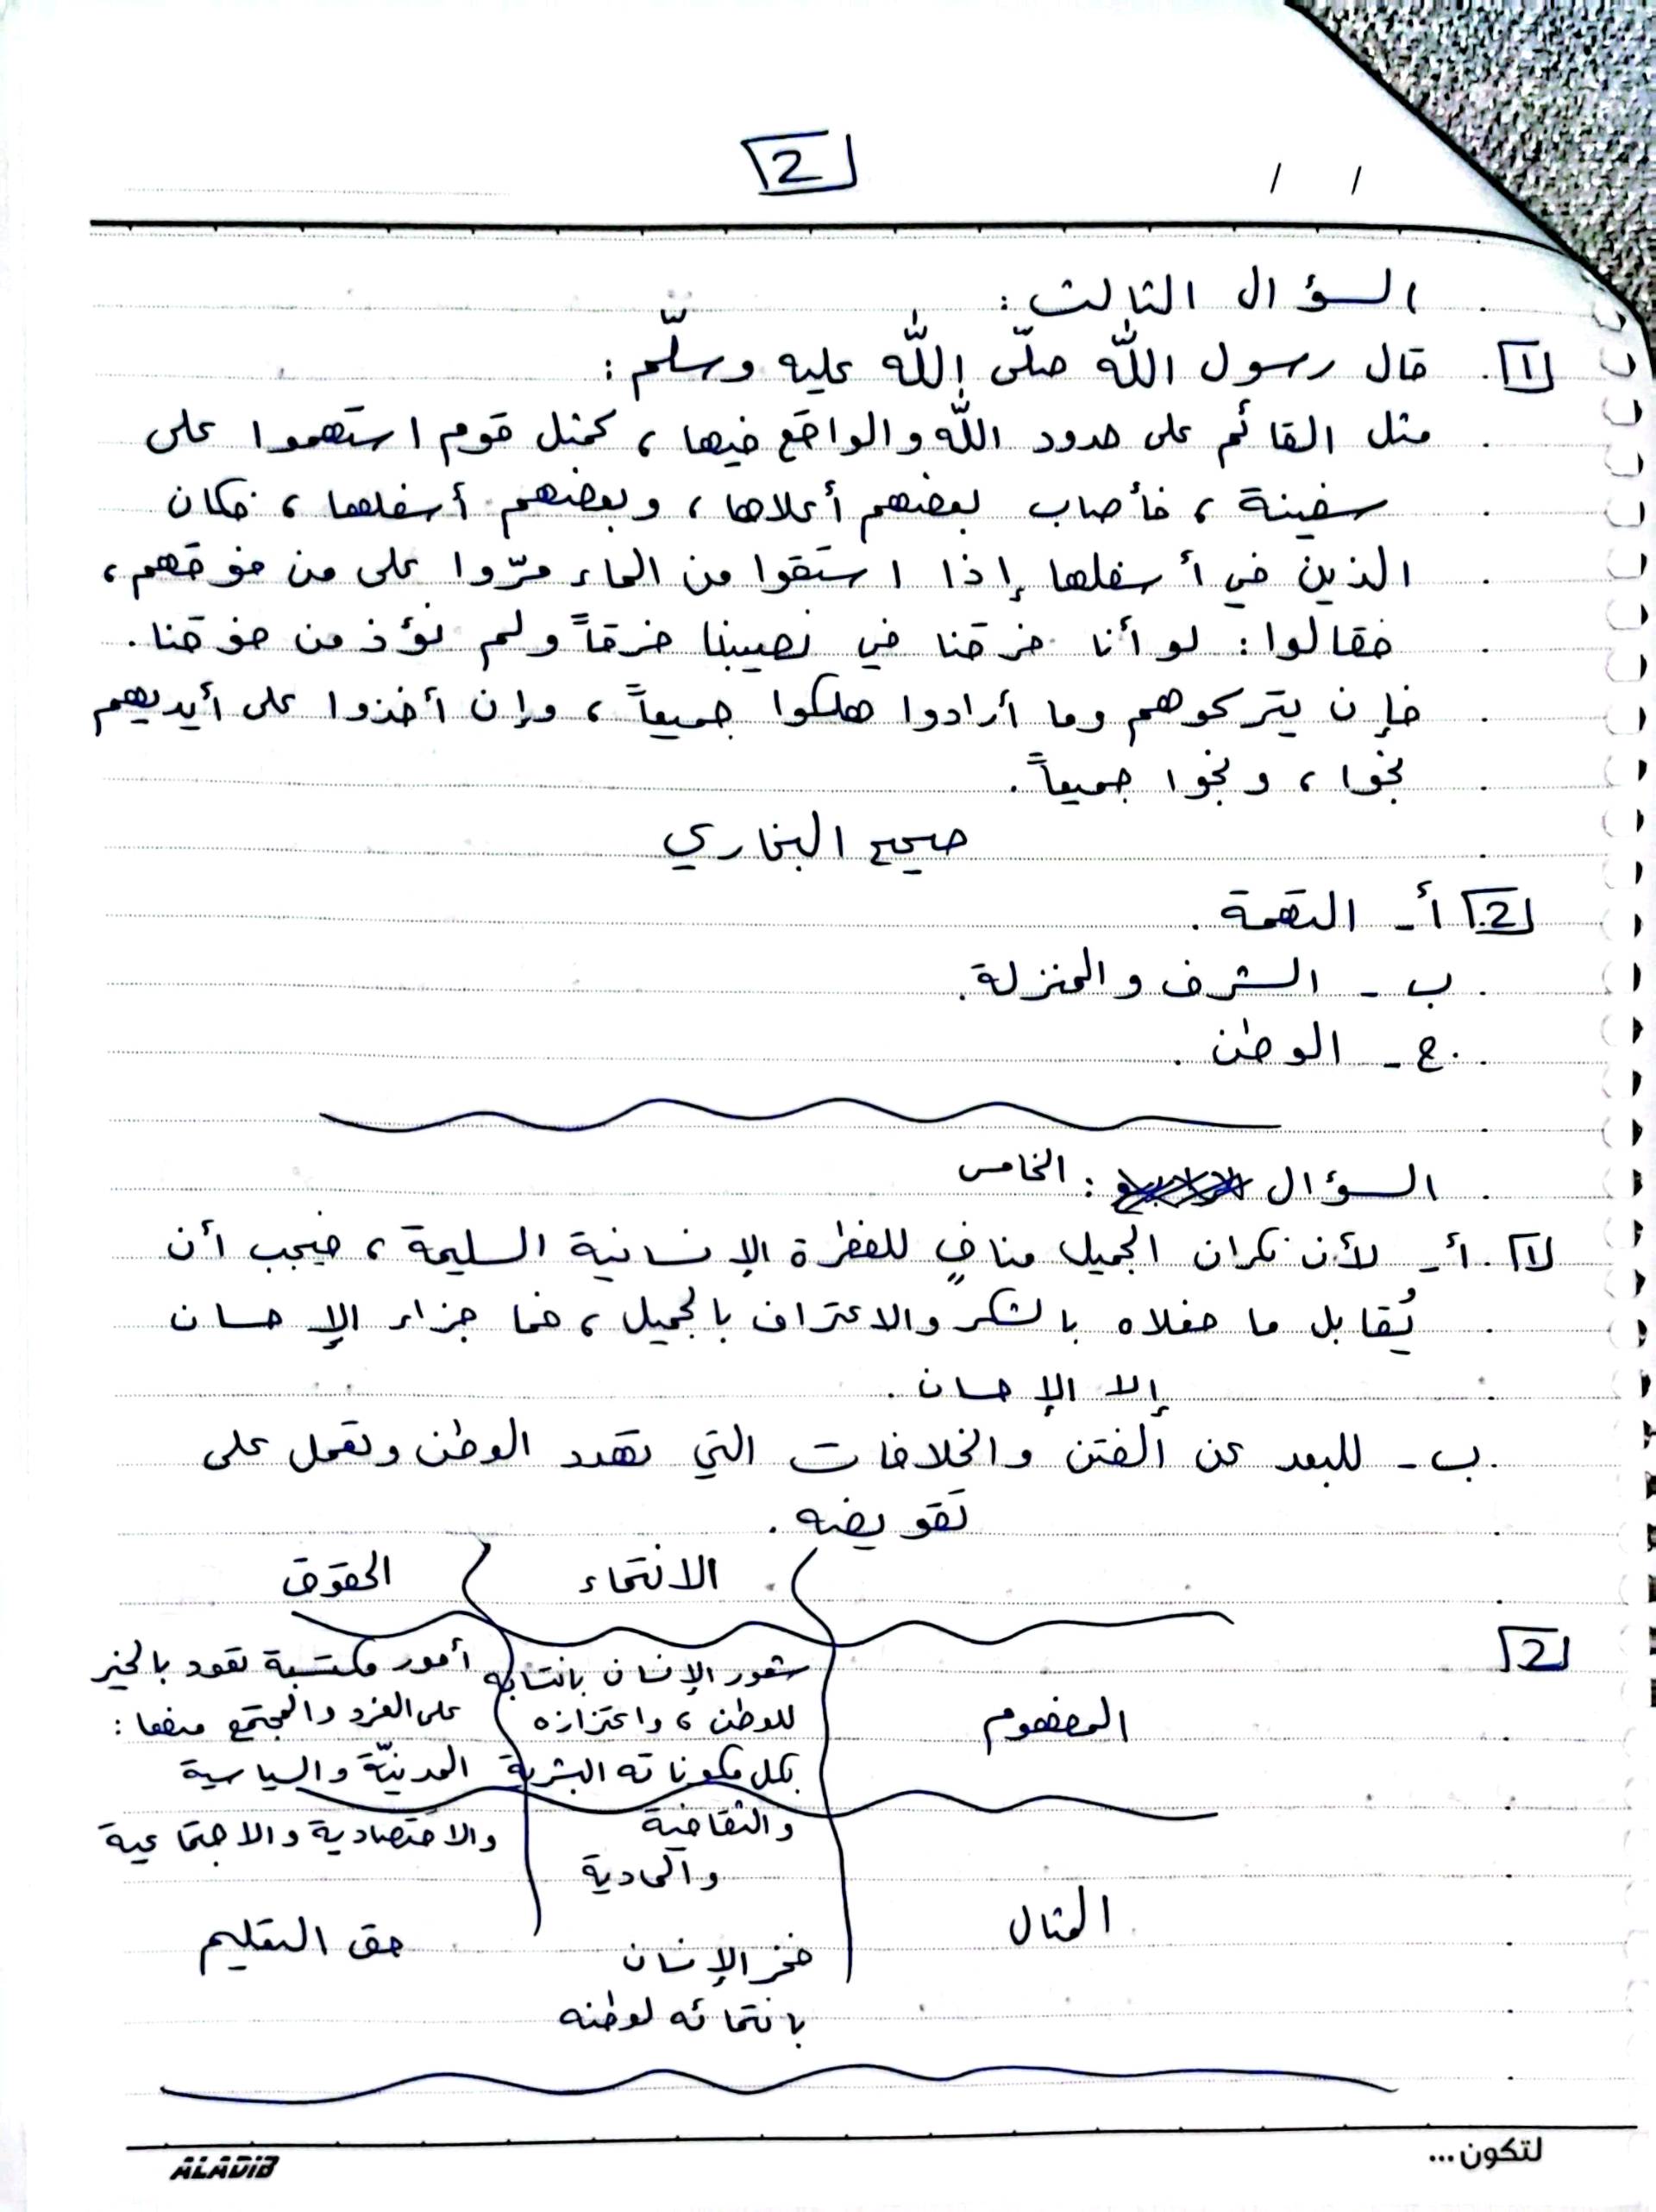 2
/ /
السؤال الثالث :
1 قال رسول الله صلّى الله عليه وسلّم :
مثل القائم على حدود الله والواقع فيها ، كمثل قوم استهموا على
سفينة ، فأصاب بعضهم أعلاها ، وبعضهم أسفلها ، فكان
الذين في أسفلها إذا استقوا من الماء مرّوا على من فوقهم ،
فقالوا : لو أنا خرقنا في نصيبنا خرقاً ولم نؤذ من فوقنا .
فإن يتركوهم وما أرادوا هلكوا جميعاً ، وإن أخذوا على أيديهم
نجوا ، ونجوا جميعاً .
صحيح البخاري
2 أ - التهمة .
ب - الشرف والمنزلة .
ج - الوطن .
السؤال : الخامس
1 أ - لأن نكران الجميل منافٍ للفطرة الإنسانية السليمة ، فيجب أن
يُقابل ما فعلاه بالشكر والاعتراف بالجميل ، فما جزاء الإحسان
إلا الإحسان .
ب - للبعد عن الفتن والخلافات التي تهدد الوطن وتعمل على
تقويضه .
الانتماء الحقوق
2
المفهوم
شعور الإنسان بانتسابه
للوطن ، واعتزازه
بكل مكوناته البشرية
والثقافية
والمادية
أمور مكتسبة تعود بالخير
على الفرد والمجتمع منها :
المدنيّة والسياسية
والاقتصادية والاجتماعية
المثال
فخر الإنسان
بانتمائه لوطنه
حق التعليم
لتكون...
ALADIB